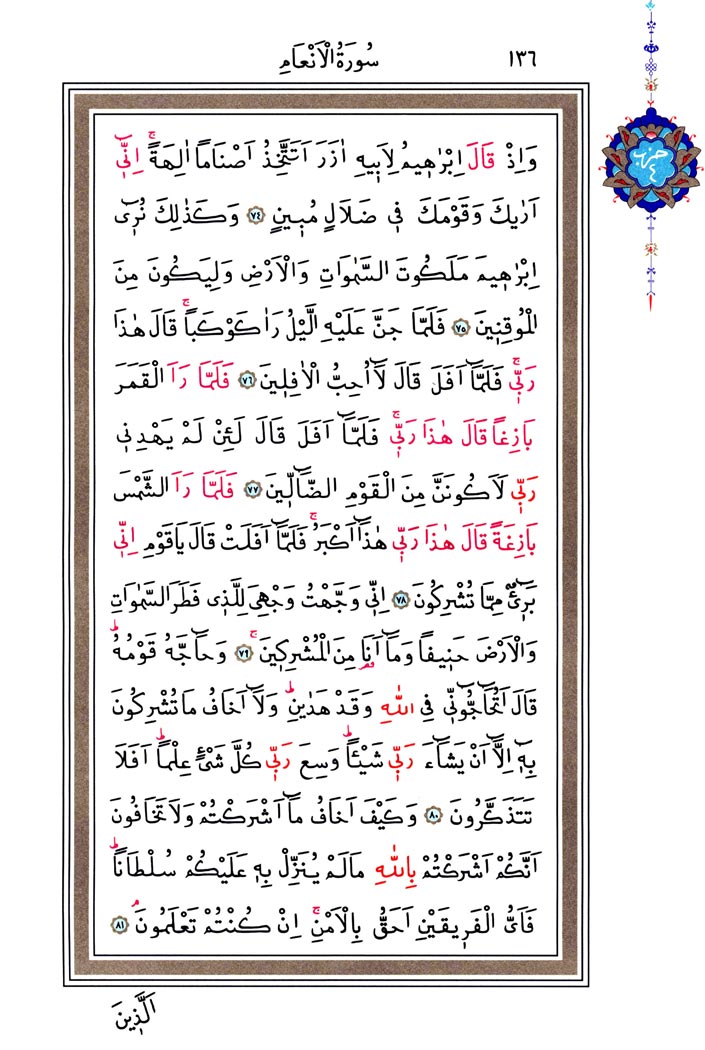 سُورَةُ الْاَنْعَامِ ١٣٦
حزب ٤
وَاِذْ قَالَ اِبْرٰهٖيمُ لِاَبٖيهِ اٰزَرَ اَتَتَّخِذُ اَصْنَاماً اٰلِهَةًۚ اِنّٖٓي
اَرٰيكَ وَقَوْمَكَ فٖي ضَلَالٍ مُبٖينٍ ﴿٧٤﴾ وَكَذٰلِكَ نُرٖٓي
اِبْرٰهٖيمَ مَلَكُوتَ السَّمٰوَاتِ وَالْاَرْضِ وَلِيَكُونَ مِنَ
الْمُوقِنٖينَ ﴿٧٥﴾ فَلَمَّا جَنَّ عَلَيْهِ الَّيْلُ رَاٰ كَوْكَباًۚ قَالَ هٰذَا
رَبّٖيۚ فَلَمَّٓا اَفَلَ قَالَ لَٓا اُحِبُّ الْاٰفِلٖينَ ﴿٧٦﴾ فَلَمَّا رَاَ الْقَمَرَ
بَازِغاً قَالَ هٰذَا رَبّٖيۚ فَلَمَّٓا اَفَلَ قَالَ لَئِنْ لَمْ يَهْدِنٖي
رَبّٖي لَاَكُونَنَّ مِنَ الْقَوْمِ الضَّٓالّٖينَ ﴿٧٧﴾ فَلَمَّا رَاَ الشَّمْسَ
بَازِغَةً قَالَ هٰذَا رَبّٖي هٰذَٓا اَكْبَرُۚ فَلَمَّٓا اَفَلَتْ قَالَ يَاقَوْمِ اِنّٖي
بَرٖٓيءٌ مِمَّا تُشْرِكُونَ ﴿٧٨﴾ اِنّٖي وَجَّهْتُ وَجْهِيَ لِلَّذٖي فَطَرَ السَّمٰوَاتِ
وَالْاَرْضَ حَنٖيفاً وَمَٓا اَنَا۬ مِنَ الْمُشْرِكٖينَۚ ﴿٧٩﴾ وَحَٓاجَّهُ قَوْمُهُؕ
قَالَ اَتُحَٓاجُّٓونّٖي فِي اللّٰهِ وَقَدْ هَدٰينِؕ وَلَٓا اَخَافُ مَا تُشْرِكُونَ
بِهٖٓ اِلَّٓا اَنْ يَشَٓاءَ رَبّٖي شَيْـٔاًؕ وَسِعَ رَبّٖي كُلَّ شَيْءٍ عِلْماًؕ اَفَلَا
تَتَذَكَّرُونَ ﴿٨٠﴾ وَكَيْفَ اَخَافُ مَٓا اَشْرَكْتُمْ وَلَا تَخَافُونَ
اَنَّكُمْ اَشْرَكْتُمْ بِاللّٰهِ مَالَمْ يُنَزِّلْ بِهٖ عَلَيْكُمْ سُلْطَاناًؕ
فَاَيُّ الْفَرٖيقَيْنِ اَحَقُّ بِالْاَمْنِۚ اِنْ كُنْتُمْ تَعْلَمُونَۢ ﴿٨١﴾
اَلَّذٖينَ